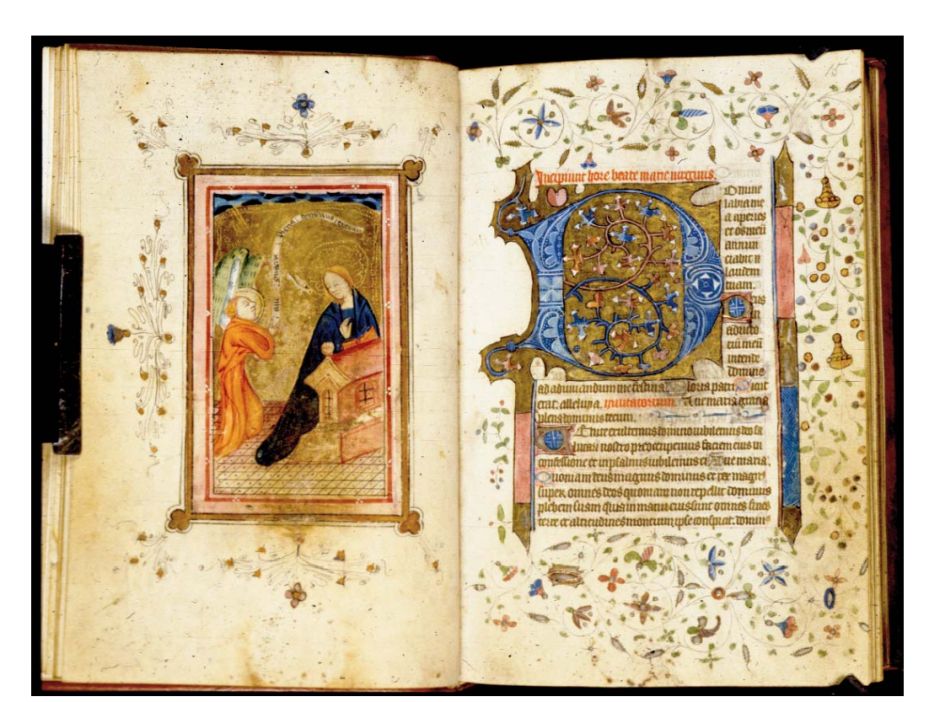 15
Incipiunt hore beate marie uirginis.
Domine
labia me
a aperies
et os meū
annun
ciabit
laudem
tuam.
Deus
in
adiuto
riū meū
intende
domine
ad adiuuandum me festina. Gloria patri Sicut
erat. alleluya. Inuitatorium. Aue maria gratia
plena dominus tecum.
Venite exultemus domino iubilemus deo sa
lutari nostro preoccupemus faciem eius in
confessione et in psalmis iubilemus ei Aue maria.
Quoniam deus magnus dominus et rex magn9
super omnes deos quoniam non repellit dominus
plebem suam quia in manu eius sunt omnes fines
terre et altitudines montium ipse conspicit. domin9